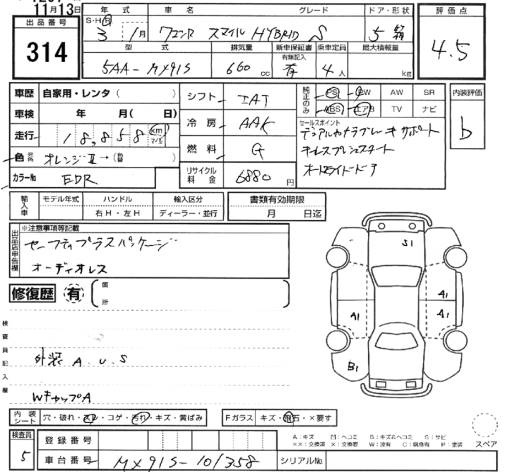 11月13日
出品番号
314
S・H・R 年式 車名 グレード ドア・形状
3 1月 ワゴンR スマイル HYBRID S 5 箱
評価点
4.5
型式 排気量 新車保証書 乗車定員 最大積載量
有無記入
5AA-MX91S 660cc 有 4人 kg
車歴 自家用・レンタ( )
車検 年 月( 日)
走行 18,858 km
色 オレンジⅡ→(
カラーNo EDR
シフト IAT
冷房 AAC
燃料 G
リサイクル料金 6880円
純正のみ PS PW AW SR
ABS エアB TV ナビ
内装評価
b
セールスポイント
デュアルカメラブレーキサポート
キーレスプッシュスタート
オートスライドドア
輸入車 モデル年式 ハンドル 輸入区分
右H・左H ディーラー・並行
書類有効期限
月 日迄
※注意事項等記載
出品店申告欄
セーフティプラスパッケージ
オーディオレス
修復歴 有 箇所
検査員記入欄
外装 A.U.S
WキャップA
S1
A1
A1
A1
B1
内装シート 穴・破れ・スレ・コゲ・汚れ・キズ・黄ばみ
Fガラス キズ・飛石・×要す
検査員
5
登録番号
車台番号 MX91S-101358
シリアルNo.
スペア